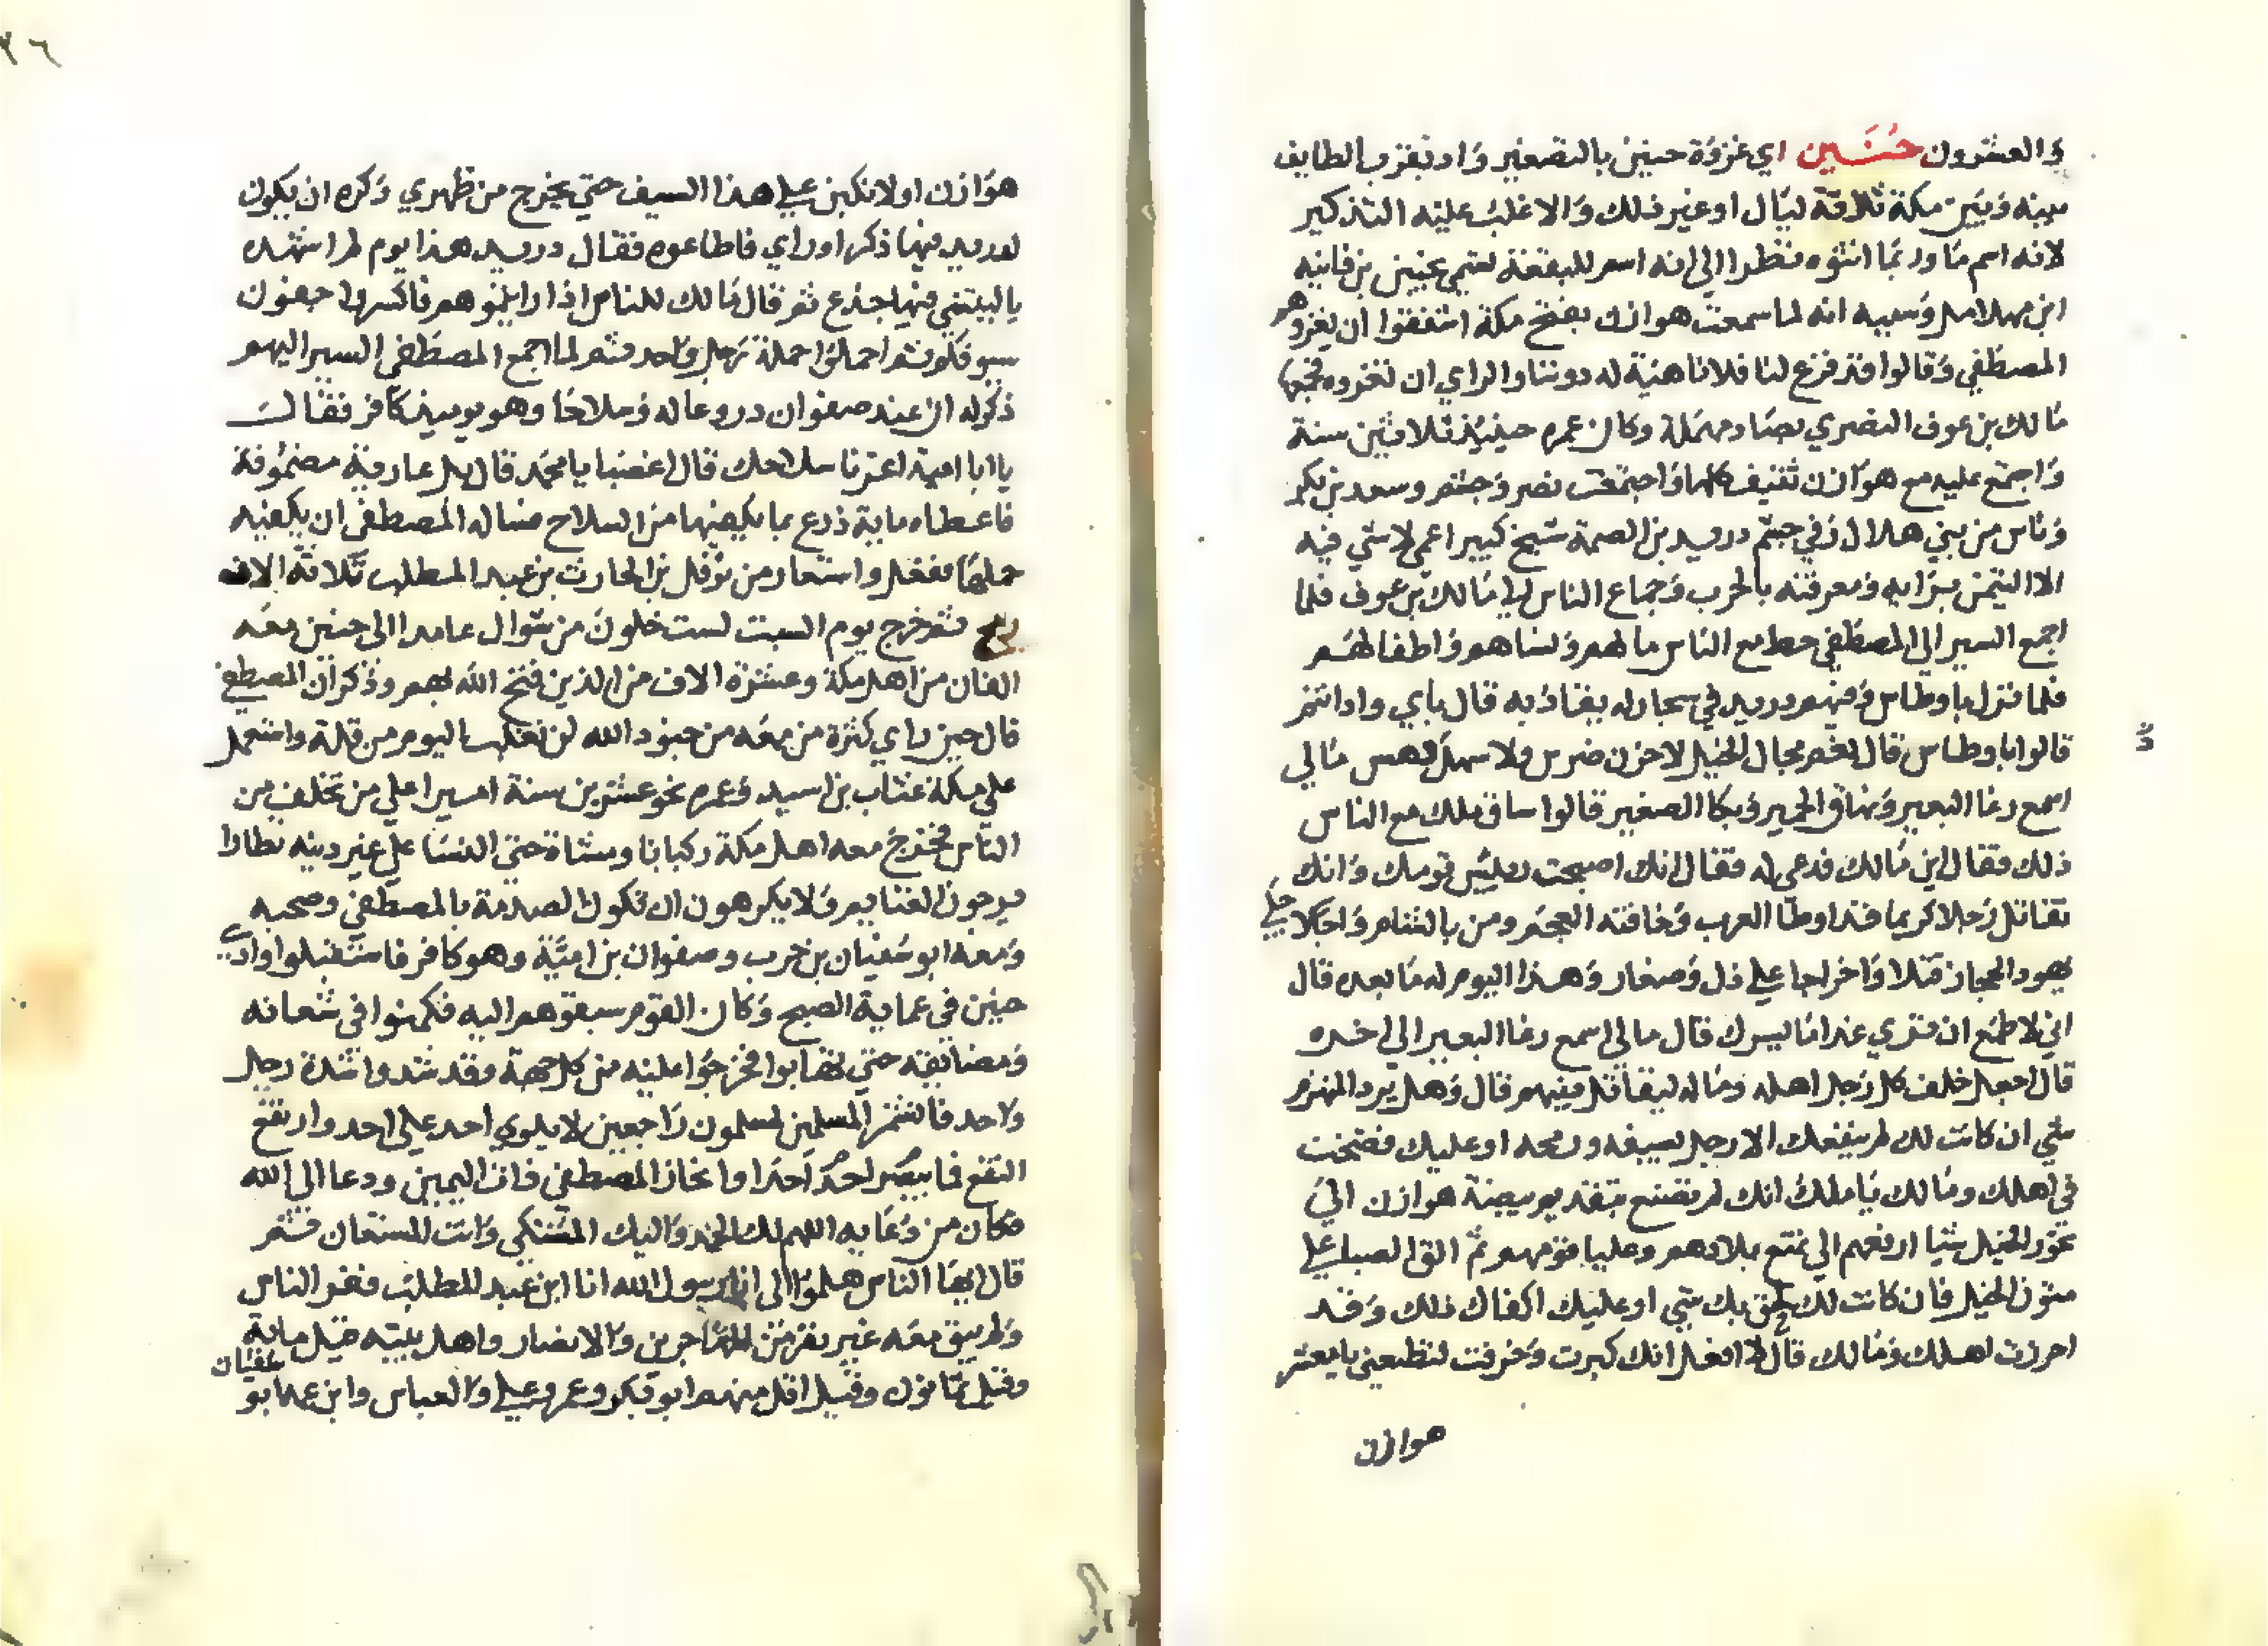 والعشرون حنين اي غزوة حنين بالتصغير واد بقرب الطايف
بينه وبين مكة ثلاثة ليال او غير ذلك والاغلب عليه التذكير
لانه اسم ما وربما انثوه نظرا الي انه اسم للبقعة سمي بحنين بن قانيه
ابن مهلاميل وسببه انه لما سمعت هوازن بفتح مكة اتفقوا ان يغزو
هم
المصطفي وقالوا قد فزع لنا فلا ناهية له دوننا والراي ان نغزوه فجمعها
مالك بن عوف النصري بصاد مهملة وكان عمره حينيذ ثلاثين سنة
واجتمع عليه مع هوازن ثقيف كلها واجتمعت نصر وجشم وسعد بن بكر
وناس من بني هلال وفي جشم دريد بن الصمة شيخ كبير اعمي لا شي فيه
الا التيمن برايه ومعرفته بالحرب وجماع الناس الي مالك بن عوف فلما
اجمع السير الي المصطفي حط مع الناس مالهم ونساهم واطفالهم
فلما نزل باوطاس ومنهم دريد في سجار له يقاد به قال باي واد انتم
قالوا باوطاس قال نعم مجال الخيل لا حزن ضرس ولا سهل دهس مالي
اسمع رغا البعير ونهاق الحمير وبكا الصغير قالوا ساق ملك مع الناس
ذلك فقال اين مالك فدعي له فقال انك اصبحت رييس قومك وانك
تقاتل رجلا كريما قد اوطا العرب وخافته العجم ومن بالشام واجلا
يهود الحجاز قتلا واخراجا علي ذل وصغار وهذا اليوم له ما بعده قال
اني لاطمع ان تري غدا ما يسرك قال مالي اسمع رغا البعير الي اخره
قال اجعل خلف كل رجل اهله وماله ليقاتل فيهم قال وهل يرد المنهزم
شي ان كانت لك لم ينفعك الا رجل بسيفه ورمحه او عليك فضحت
في اهلك ومالك يا ملك انك لم تصنع بتقديم بيضة هوازن الي
نحور الخيل شيا ارفعهم الي ممتع بلادهم وعليا قومهم ثم الق الصبا علي
متون الخيل فان كانت لك لحق بك شي او عليك اكفاك ذلك وقد
احرزت اهلك ومالك قال لا افعل انك كبرت وخرفت لتطيعني يا معشر
هوازن
هوازن او لاتكين علي هذا السيف حتي يخرج من ظهري وكره ان يكون
لدريد فيها ذكر او راي فاطاعوه فقال دريد هذا يوم لم اشهده
يا ليتني فيها جذع ثم قال مالك للناس اذا رايتموهم فاكسروا جفون
سيوفكم ثم احملوا حملة رجل واحد ثم لما اجمع المصطفي السير اليهم
ذكر له ان عند صفوان دروعا له وسلاحا وهو يوميذ كافر فقال
يا ابا امية اعرنا سلاحك قال اغصبا يا محمد قال بل عارية مضمونة
فاعطاه ماية درع بما يكفيها من السلاح فساله المصطفي ان يكفيه
حملها ففعل واستعار من نوفل بن الحارث بن عبد المطلب ثلاثة الاف
رمح ثم خرج يوم السبت لست خلون من شوال عامدا الي حنين معه
الفان من اهل مكة وعشرة الاف من الذين فتح الله بهم وذكر ان المصطفي
قال حين راي كثرة من معه من جنود الله لن نغلب اليوم من قلة واستعمل
علي مكة عتاب بن اسيد وعمره نحو عشرين سنة اميرا علي من تخلف من
الناس فخرج معه اهل مكة ركبانا ومشاة حتي النسا علي غير دينه نظارا
يرجون الغنايم ولا يكرهون ان تكون الصدمة بالمصطفي وصحبه
ومعه ابو سفيان بن حرب وصفوان بن امية وهو كافر فاستقبلوا وادي
حنين في عماية الصبح وكان القوم سبقوهم اليه فكمنوا في شعابه
ومضايقه حتي تهابوا فخرجوا عليه من كل جهة وقد شدوا شدة رجل
واحد فانشمر المسلمين لمسلمون راجعين لا يلوي احد علي احد وارتفع
النقع فما يبصر احد احدا وانحاز المصطفي ذات اليمين ودعا الي الله
فكان من دعايه اللهم لك الحمد واليك المشتكي وانت المستعان ثم
قال ايها الناس هلموا الي انا رسول الله انا ابن عبد المطلب ففر الناس
وطريق معه غير نفر من المهاجرين والانصار واهل بيته قيل ماية
وقيل ثمانون وقيل اقل منهم ابو بكر وعمر وعلي والعباس وابن عمه ابو
سفيان